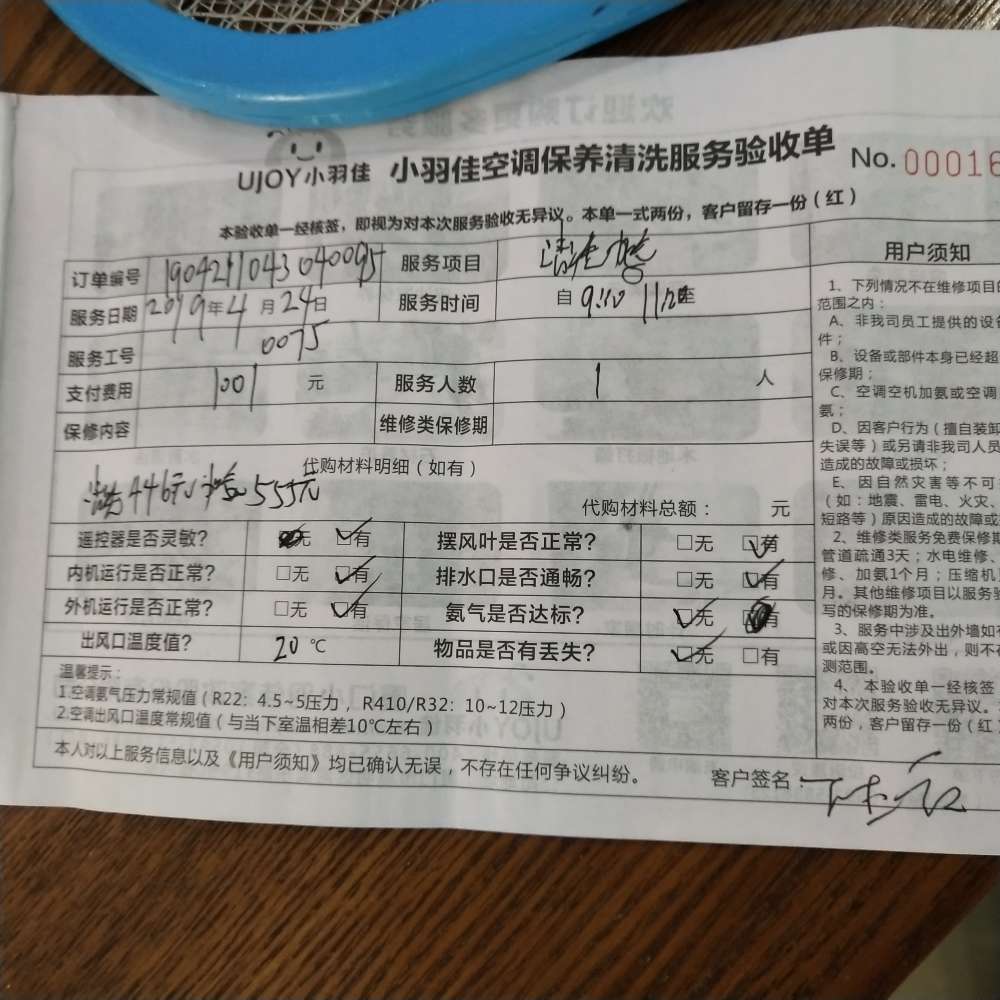 UJOY小羽佳 小羽佳空调保养清洗服务验收单 No.00016
本验收单一经核签，即视为对本次服务验收无异议。本单一式两份，客户留存一份（红）
订单编号 1904211043040095 服务项目
服务日期 2019年4月24日 服务时间 自9:10
服务工号 0075
支付费用 1001 元 服务人数 1 人
保修内容 维修类保修期
代购材料明细（如有）
446元 555元 代购材料总额： 元
遥控器是否灵敏？ 无 有 摆风叶是否正常？ 无 有
内机运行是否正常？ 无 有 排水口是否通畅？ 无 有
外机运行是否正常？ 无 有 氨气是否达标？ 无 有
出风口温度值？ 20 ℃ 物品是否有丢失？ 无 有
温馨提示：
1.空调氨气压力常规值（R22：4.5~5压力， R410/R32：10~12压力）
2.空调出风口温度常规值（与当下室温相差10℃左右）
本人对以上服务信息以及《用户须知》均已确认无误，不存在任何争议纠纷。 客户签名：
用户须知
1、下列情况不在维修项目
范围之内：
A、非我司员工提供的设
件；
B、设备或部件本身已经超
保修期；
C、空调空机加氨或空调
氨；
D、因客户行为（擅自装卸
失误等）或另请非我司人员
造成的故障或损坏；
E、因自然灾害等不可
（如：地震、雷电、火灾、
短路等）原因造成的故障或
2、维修类服务免费保修期
管道疏通3天；水电维修、
修、加氨1个月；压缩机
月。其他维修项目以服务
写的保修期为准。
3、服务中涉及出外墙如
或因高空无法外出，则不
测范围。
4、本验收单一经核签
对本次服务验收无异议。
两份，客户留存一份（红